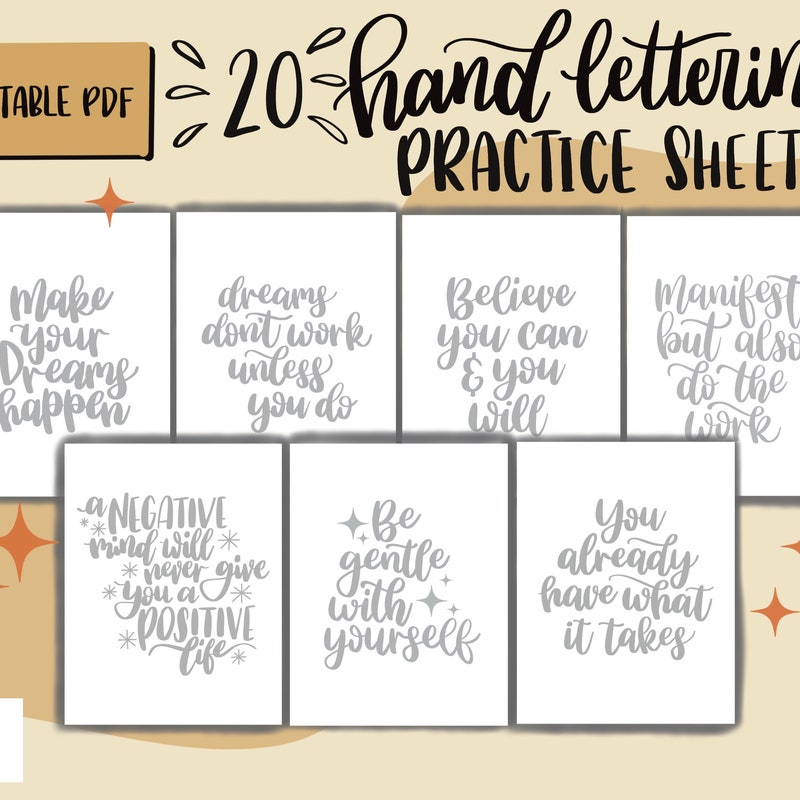 TABLE PDF
20
hand letterin
PRACTICE SHEET
Make
your
Dreams
happen
dreams
don't work
unless
you do
Believe
you can
& you
will
Manifest
but also
do the
work
a NEGATIVE
mind will
never give
you a
POSITIVE
life
Be
gentle
with
yourself
You
already
have what
it takes